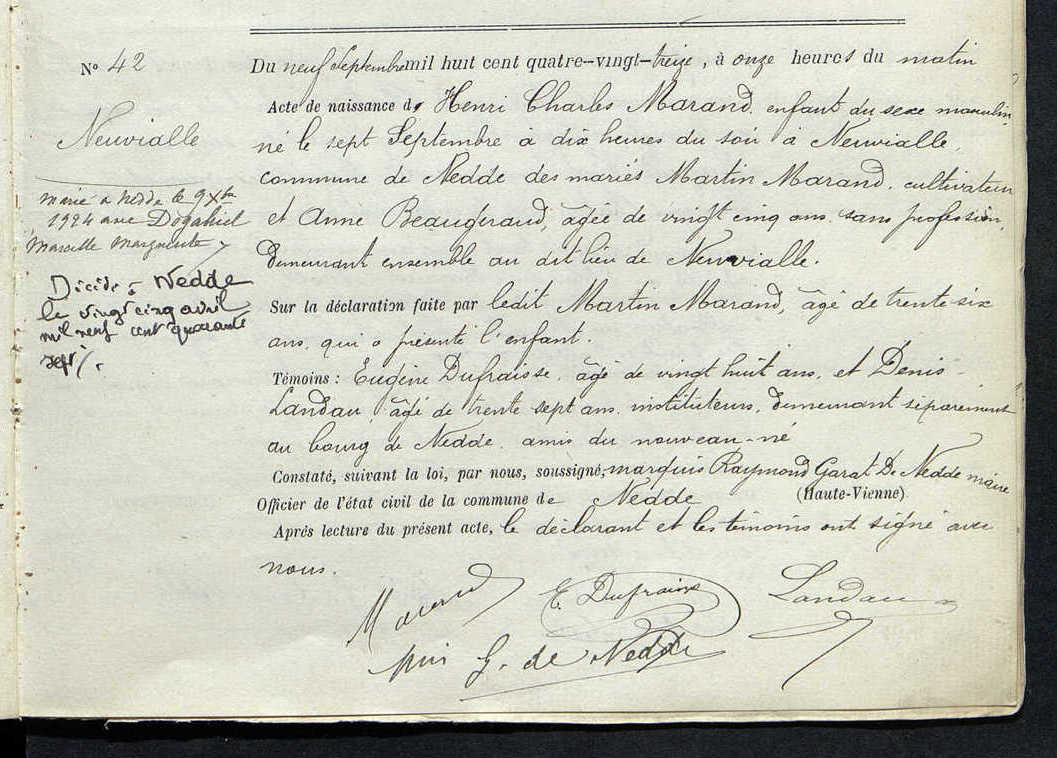 N° 42
Neuvialle
Marié à Nedde le 9 Xbre
1924 avec
Marcelle Marguerite
Décédé à Nedde
le vingt cinq avril
mil neuf cent quarante
sept.
Du neuf Septembre mil huit cent quatre-vingt-treize, à onze heures du matin
Acte de naissance de Henri Charles Marand, enfant du sexe masculin,
né le sept Septembre à dix heures du soir à Neuvialle,
commune de Nedde des mariés Martin Marand, cultivateur
et Anne Beaugiraud, âgée de vingt cinq ans, sans profession,
demeurant ensemble au dit lieu de Neuvialle.
Sur la déclaration faite par ledit Martin Marand, âgé de trente-six
ans, qui a présenté l'enfant.
Témoins : Eugène Dufraisse, âgé de vingt huit ans, et Denis
Landau, âgé de trente sept ans, instituteurs, demeurant séparément
au bourg de Nedde, amis du nouveau-né
Constaté, suivant la loi, par nous, soussigné, marquis Raymond Garat De Nedde maire
Officier de l'état civil de la commune de Nedde (Haute-Vienne)
Après lecture du présent acte, le déclarant et les témoins ont signé avec
nous.
Marand E. Dufraisse Landau
G. de Nedde